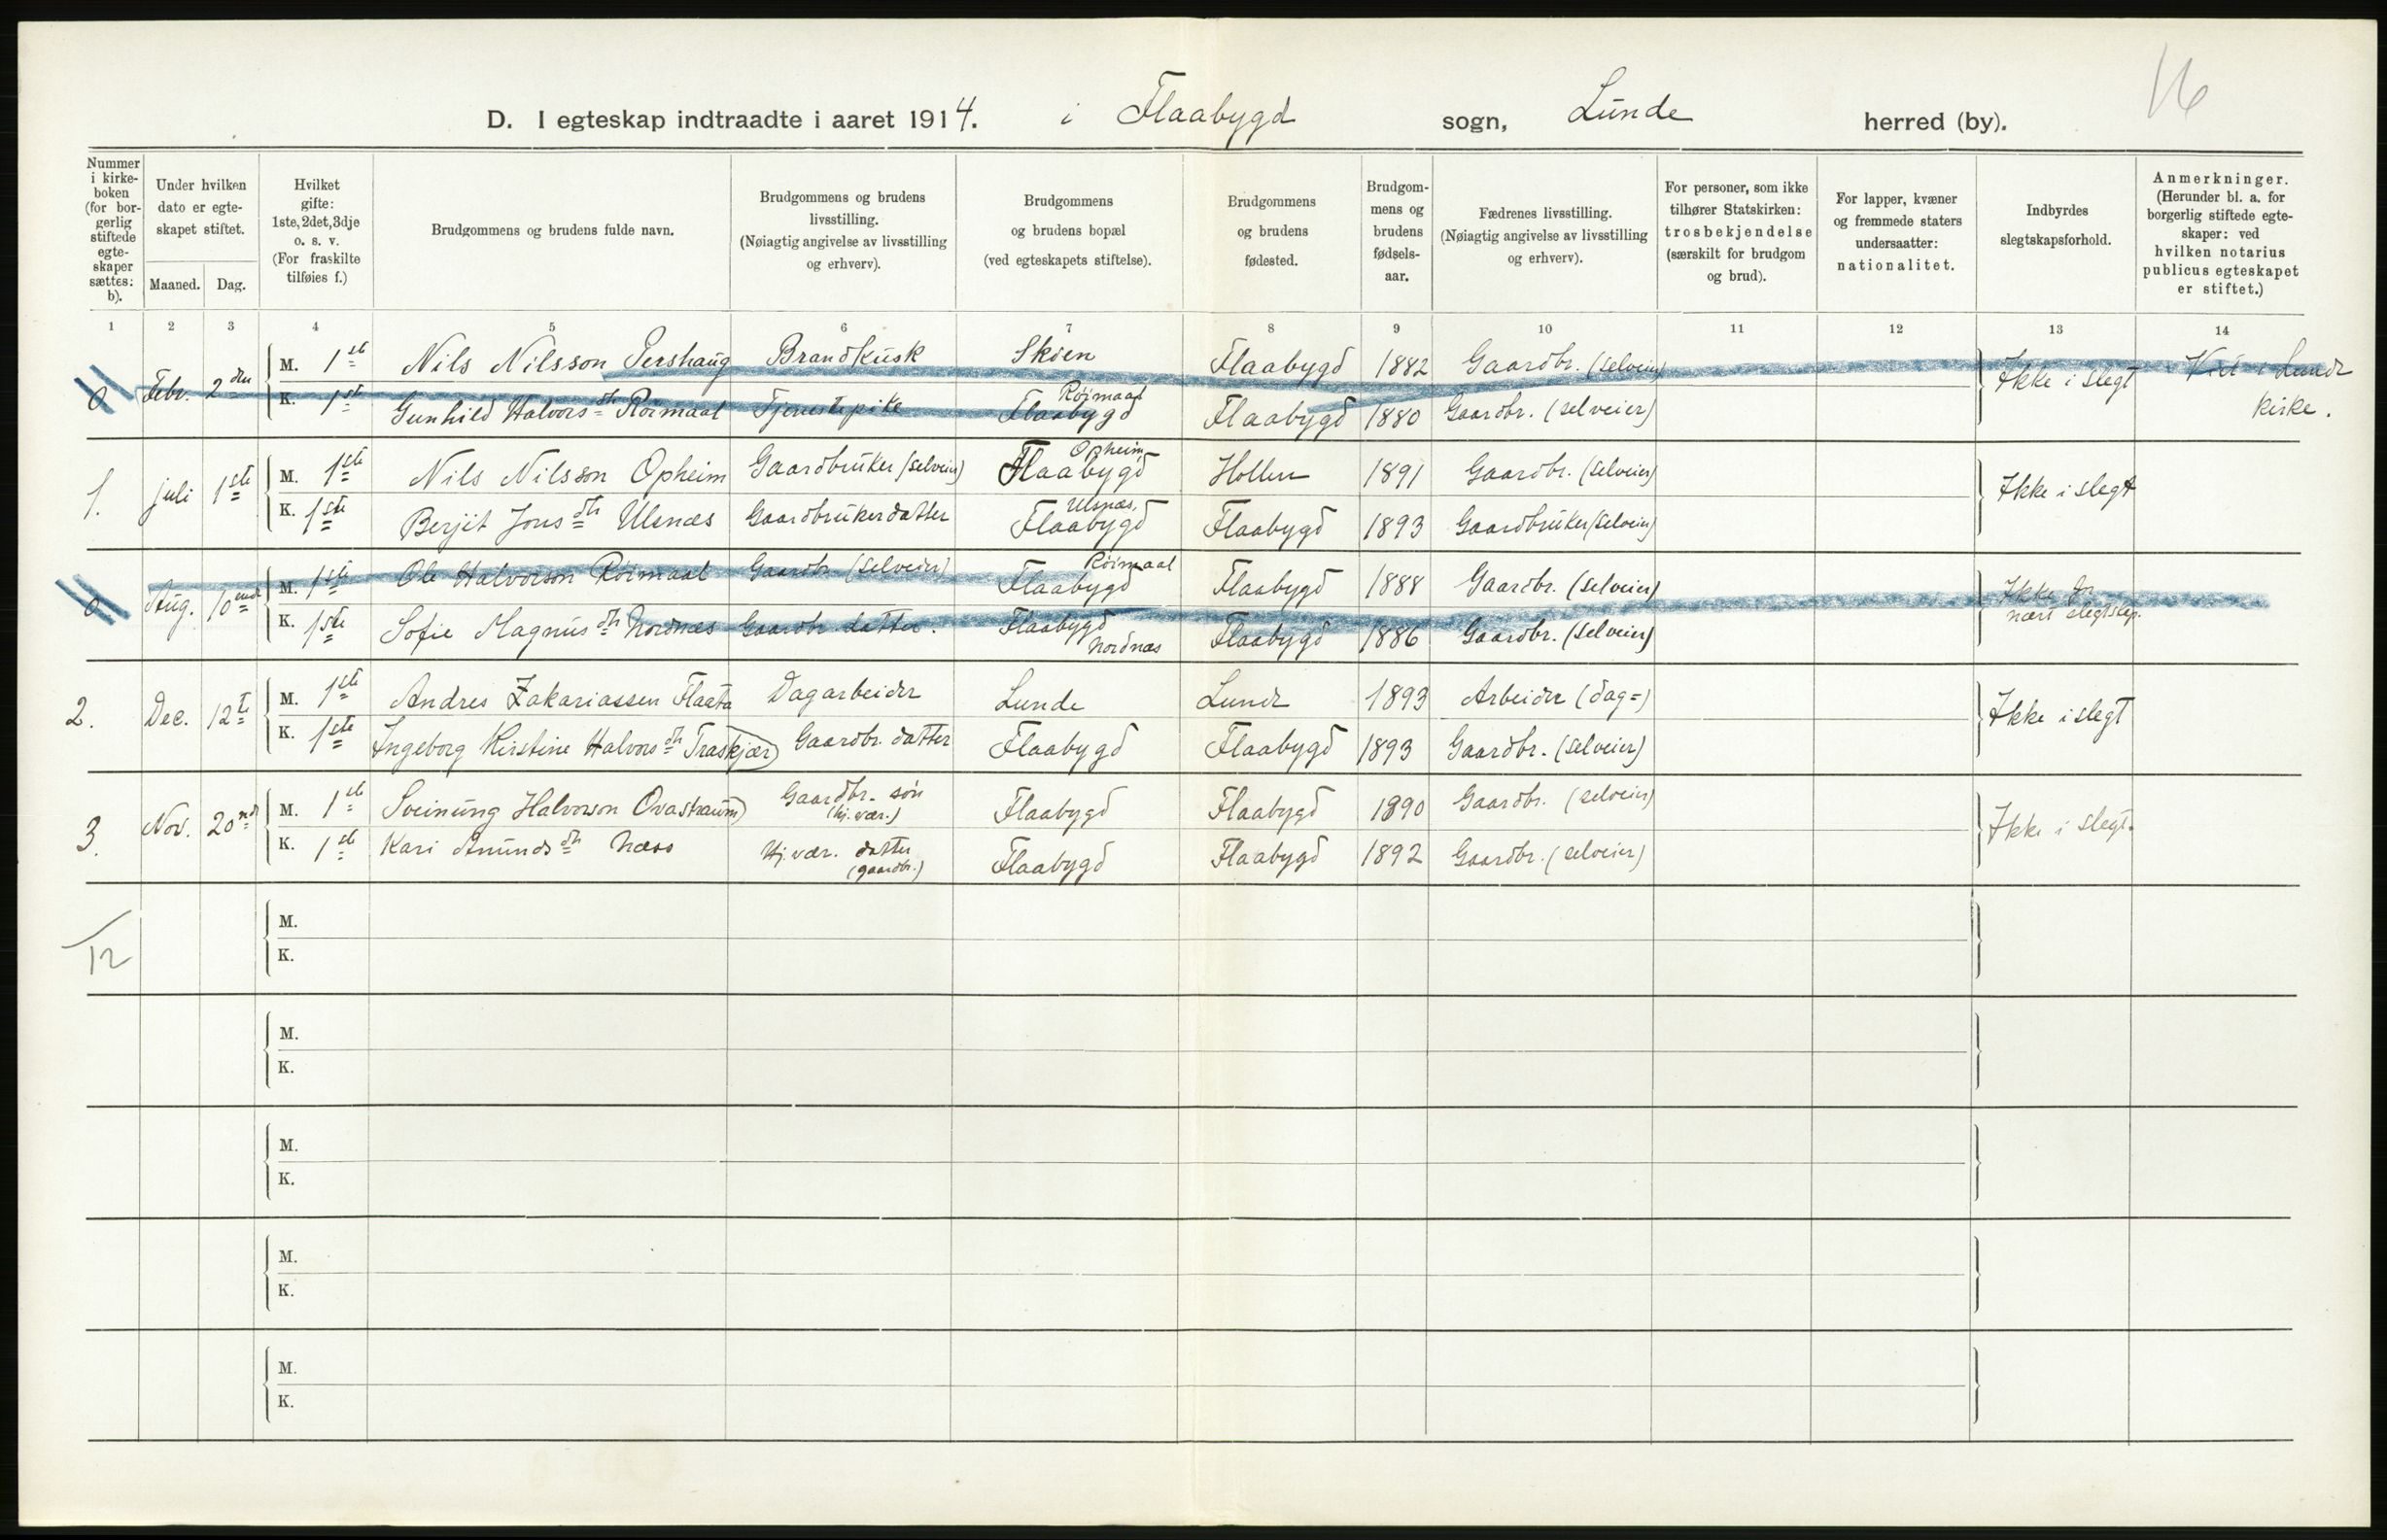 16
D. I egteskap indtraadte i aaret 1914. i Flaabygd sogn, Lunde herred (by).
Nummer i kirke-boken (for bor-gerlig stiftede egte-skaper sættes: b).
Under hvilken dato er egte-skapet stiftet.
Maaned. Dag.
Hvilket gifte: 1ste, 2det, 3dje o. s. v. (For fraskilte tilføies f.)
Brudgommens og brudens fulde navn.
Brudgommens og brudens livsstilling. (Nøiagtig angivelse av livsstilling og erhverv).
Brudgommens og brudens bopæl (ved egteskapets stiftelse).
Brudgommens og brudens fødested.
Brudgom-mens og brudens fødsels-aar.
Fædrenes livsstilling. (Nøiagtig angivelse av livsstilling og erhverv).
For personer, som ikke tilhører Statskirken: trosbekjendelse (særskilt for brudgom og brud).
For lapper, kvæner og fremmede staters undersaatter: nationalitet.
Indbyrdes slegtskapsforhold.
Anmerkninger. (Herunder bl. a. for borgerlig stiftede egte-skaper: ved hvilken notarius publicus egteskapet er stiftet.)
1 2 3 4 5 6 7 8 9 10 11 12 13 14
0 Febr. 2den M. 1ste Nils Nilsson Pershaug Brandkusk Skien Flaabygd 1882 Gaardbr. (selveier) Ikke i slegt Viet i Lunde kirke.
K. 1ste Gunhild Halvorsdtr Röimaal Tjenestepike Röimaal Flaabygd Flaabygd 1880 Gaardbr. (selveier)
1. juli 1ste M. 1ste Nils Nilsson Opheim Gaardbruker (selveier) Opheim, Flaabygd Hollen 1891 Gaardbr. (selveier) Ikke i slegt
K. 1ste Berjit Jonsdtr Ulsnæs Gaardbrukerdatter Ulsnæs, Flaabygd Flaabygd 1893 Gaardbruker (selveier)
0 Aug. 10ende M. 1ste Ole Halvorson Röimaal Gaardbr. (selveier) Röimaal Flaabygd Flaabygd 1888 Gaardbr. (selveier) Ikke for nært slegtskap.
K. 1ste Sofie Magnusdtr Nordnæs Gaardbr. datter. Flaabygd Nordnæs Flaabygd 1886 Gaardbr. (selveier)
2. Dec. 12te M. 1ste Andres Zakariassen Flaata Dagarbeider Lunde Lunde 1893 Arbeider (dag=) Ikke i slegt
K. 1ste Ingeborg Kirstine Halvorsdtr Traskjær Gaardbr. datter Flaabygd Flaabygd 1893 Gaardbr. (selveier)
3. Nov. 20nde M. 1ste Sveinung Halvorson Ovastraum Gaardbr. sön (hj. vær.) Flaabygd Flaabygd 1890 Gaardbr. (selveier) Ikke i slegt.
K. 1ste Kari Anundsdtr Næss Hj. vær. datter (gaardbr.) Flaabygd Flaabygd 1892 Gaardbr. (selveier)
M.
12
K.
M.
K.
M.
K.
M.
K.
M.
K.